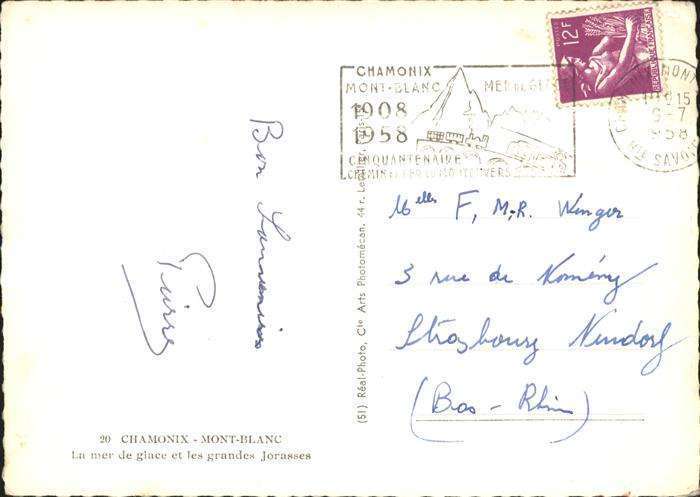 12F
POSTES
RÉPUBLIQUE FRANÇAISE
CHAMONIX
MONT-BLANC MER DE GLACE
1908
1958
CINQUANTENAIRE
CHEMIN DE FER DU MONTENVERS
15
9-7
1958
HTE SAVOIE
Bon Souvenirs
Pierre
Melles F, M.R. Winger
3 rue de
Strasbourg Neudorf
(Bas-Rhin)
(51) Réal-Photo, Cie Arts Photomécan. 44 r.
20 CHAMONIX - MONT-BLANC
La mer de glace et les grandes Jorasses